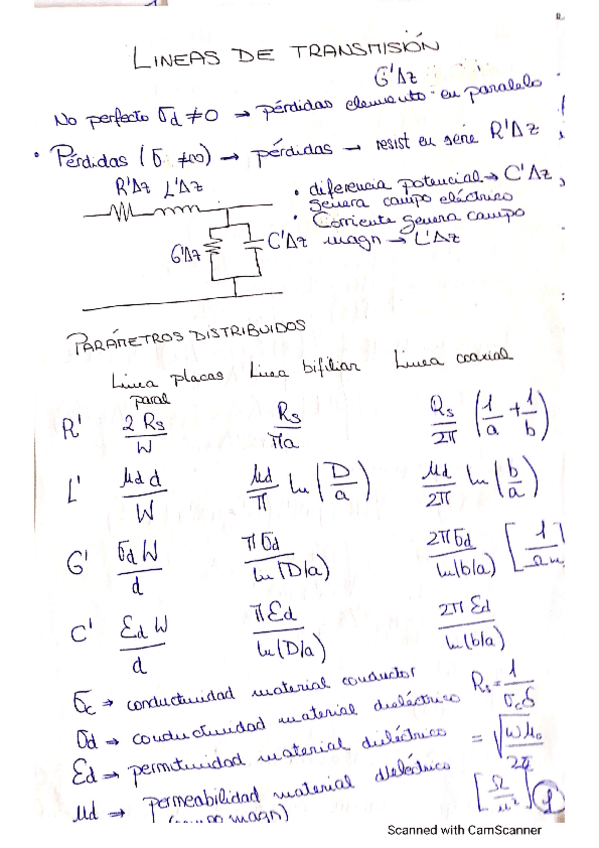 LINEAS DE TRANSMISIÓN
G'Δz
No perfecto σd ≠0 → pérdidas elemento en paralelo
• Pérdidas (σ ≠∞) → pérdidas → resist en serie R'Δz
R'Δz L'Δz
• diferencia potencial → C'Δz,
genera campo eléctrico
• Corriente genera campo
magn → L'Δz
G'Δz
C'Δz
PARÁMETROS DISTRIBUIDOS
Linea placas paral Linea bifiliar Linea coaxial
R' 2 Rs / W Rs / πa Rs / 2π (1/a + 1/b)
L' μd d / W μd / π ln (D/a) μd / 2π ln (b/a)
G' σd W / d π σd / ln (D/a) 2π σd / ln(b/a)
C' Ed W / d π Ed / ln (D/a) 2π Ed / ln(b/a)
σc → conductividad material conductor Rs = 1 / σc δ
σd → conductividad material dieléctrico
Ed → permitividad material dieléctrico
μd → permeabilidad material dieléctrico
Scanned with CamScanner